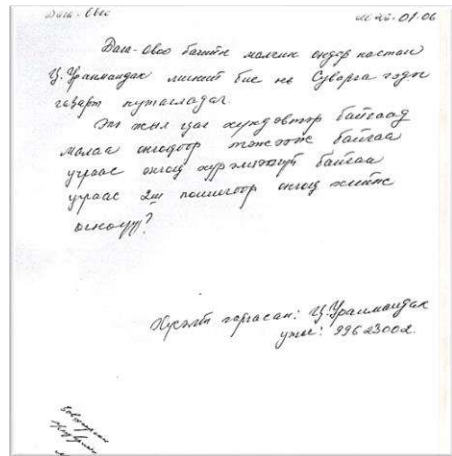 Дага-Овоо
-01-06
Дага-Овоо багийн малчин өндөр настан
Ц.Уранмандах миний бие нь Суварга гэдэг
газарт нутагладаг.
Энэ жил цаг хүндэвтэр байгаад
малаа онгоцоор тэжээж байгаа
учраас онгоц хүрэлцэхгүй байгаа
учраас 2ш онгоц хийж
өгнө үү?
Хүсэлт гаргасан: Ц.Уранмандах
утас: 99623002.